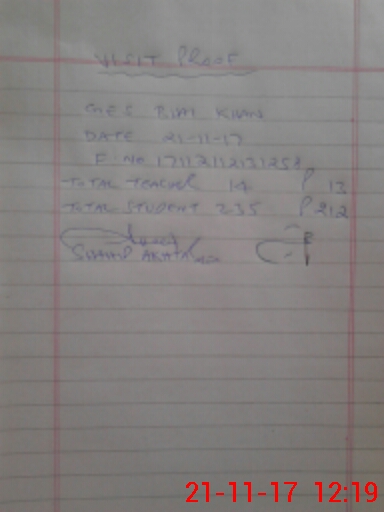 VISIT PROOF
GES BIM KHAN
DATE 21-11-17
F. NO
TOTAL TEACHER 14 P 13
TOTAL STUDENT 235 P 212
21-11-17 12:19